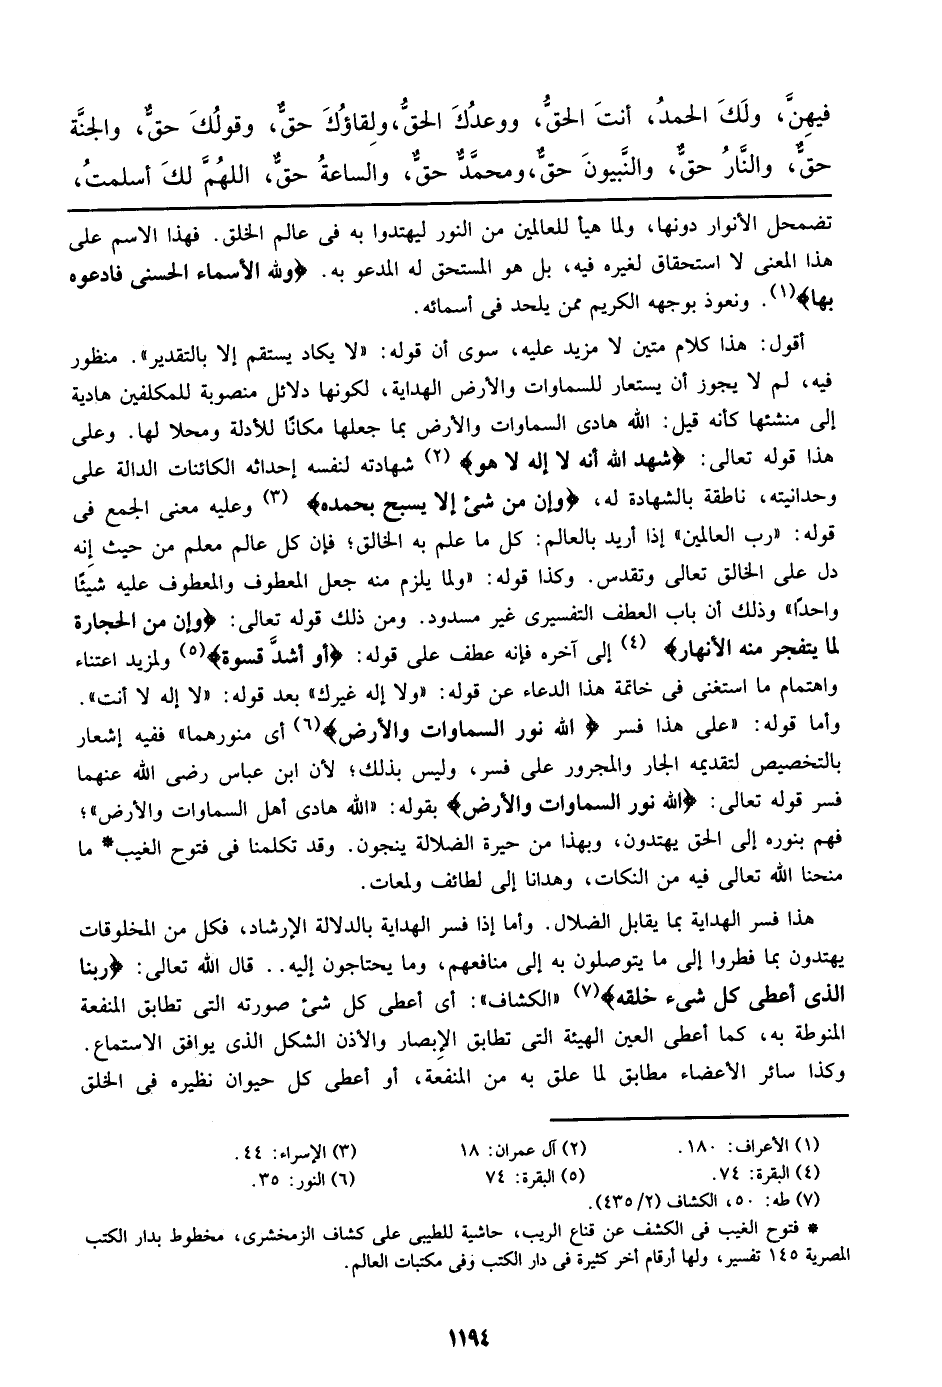 فيهِنَّ، ولَكَ الحمدُ، أنتَ الحقُّ، ووعدُكَ الحقُّ،ولِقاؤُكَ حقٌّ، وقولُكَ حقٌّ، والجنَّة
حقٌّ، والنَّارُ حقٌّ، والنَّبيونَ حقٌّ،ومحمَّدٌ حقٌّ، والساعةُ حقٌّ، اللهُمَّ لكَ أسلمتُ،
تضمحل الأنوار دونها، ولما هيأ للعالمين من النور ليهتدوا به فى عالم الخلق. فهذا الاسم على
هذا المعنى لا استحقاق لغيره فيه، بل هو المستحق له المدعو به. ﴿ولله الأسماء الحسنى فادعوه
بها﴾(١). ونعوذ بوجهه الكريم ممن يلحد فى أسمائه.
أقول: هذا كلام متين لا مزيد عليه، سوى أن قوله: «لا يكاد يستقم إلا بالتقدير». منظور
فيه، لم لا يجوز أن يستعار للسماوات والأرض الهداية، لكونها دلائل منصوبة للمكلفين هادية
إلى منشئها كأنه قيل: الله هادى السماوات والأرض بما جعلها مكانًا للأدلة ومحلا لها. وعلى
هذا قوله تعالى: ﴿شهد الله أنه لا إله لا هو﴾ (٢) شهادته لنفسه إحداثه الكائنات الدالة على
وحدانيته، ناطقة بالشهادة له، ﴿وإن من شئ إلا يسبح بحمده﴾ (٣) وعليه معنى الجمع فى
قوله: «رب العالمين» إذا أريد بالعالم: كل ما علم به الخالق؛ فإن كل عالم معلم من حيث إنه
دل على الخالق تعالى وتقدس. وكذا قوله: «ولما يلزم منه جعل المعطوف والمعطوف عليه شيئًا
واحدًا» وذلك أن باب العطف التفسيرى غير مسدود. ومن ذلك قوله تعالى: ﴿وإن من الحجارة
لما يتفجر منه الأنهار﴾ (٤) إلى آخره فإنه عطف على قوله: ﴿أو أشدَّ قسوة﴾(٥) ولمزيد اعتناء
واهتمام ما استغنى فى خاتمة هذا الدعاء عن قوله: «ولا إله غيرك» بعد قوله: «لا إله لا أنت».
وأما قوله: «على هذا فسر ﴿ الله نور السماوات والأرض﴾(٦) أى منورهما» ففيه إشعار
بالتخصيص لتقديمه الجار والمجرور على فسر، وليس بذلك؛ لأن ابن عباس رضى الله عنهما
فسر قوله تعالى: ﴿الله نور السماوات والأرض﴾ بقوله: «الله هادى أهل السماوات والأرض»؛
فهم بنوره إلى الحق يهتدون، وبهذا من حيرة الضلالة ينجون. وقد تكلمنا فى فتوح الغيب* ما
منحنا الله تعالى فيه من النكات، وهدانا إلى لطائف ولمعات.
هذا فسر الهداية بما يقابل الضلال. وأما إذا فسر الهداية بالدلالة الإرشاد، فكل من المخلوقات
يهتدون بما فطروا إلى ما يتوصلون به إلى منافعهم، وما يحتاجون إليه.. قال الله تعالى: ﴿ربنا
الذى أعطى كل شىء خلقه﴾(٧) «الكشاف»: أى أعطى كل شئ صورته التى تطابق المنفعة
المنوطة به، كما أعطى العين الهيئة التى تطابق الإبصار والأذن الشكل الذى يوافق الاستماع.
وكذا سائر الأعضاء مطابق لما علق به من المنفعة، أو أعطى كل حيوان نظيره فى الخلق
(١) الأعراف: ١٨٠. (٢) آل عمران: ١٨ (٣) الإسراء: ٤٤.
(٤) البقرة: ٧٤. (٥) البقرة: ٧٤ (٦) النور: ٣٥.
(٧) طه: ٥٠، الكشاف (٤٣٥/٢).
* فتوح الغيب فى الكشف عن قناع الريب، حاشية للطيبى على كشاف الزمخشرى، مخطوط بدار الكتب
المصرية ١٤٥ تفسير، ولها أرقام أخر كثيرة فى دار الكتب وفى مكتبات العالم.
١١٩٤